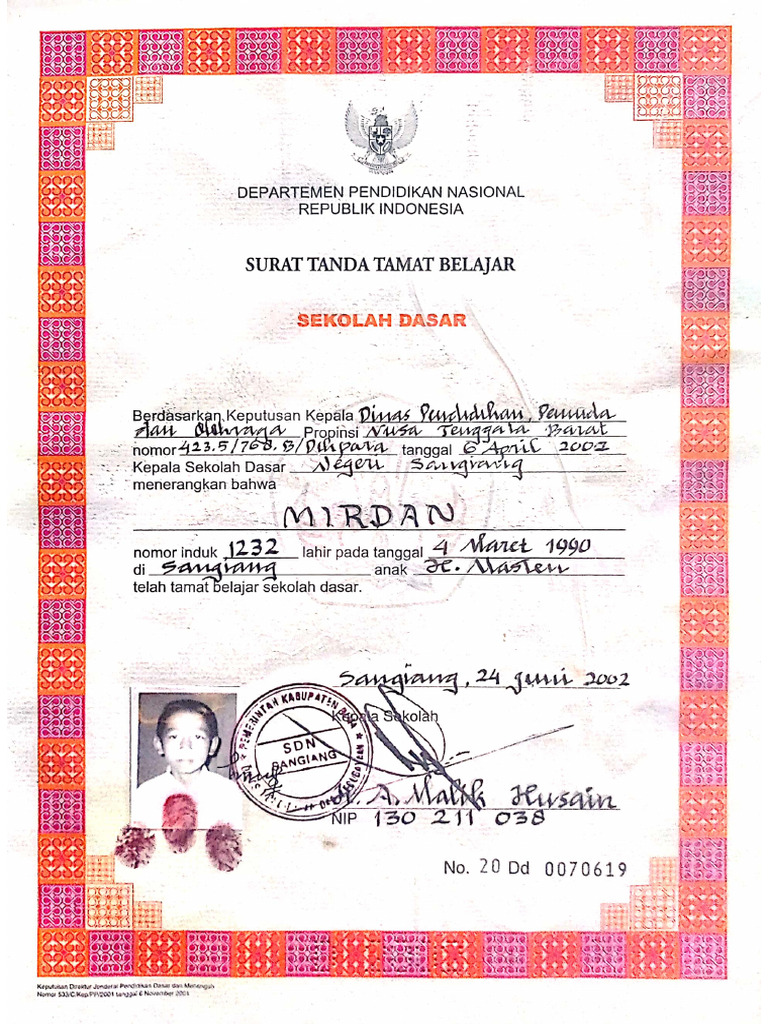 DEPARTEMEN PENDIDIKAN NASIONAL
REPUBLIK INDONESIA
SURAT TANDA TAMAT BELAJAR
SEKOLAH DASAR
Berdasarkan Keputusan Kepala Dinas Pendidikan, Pemuda
dan Olehraga Propinsi Nusa Tenggara Barat
nomor 423.5/768.B/Dikpora tanggal 6 April 2002
Kepala Sekolah Dasar Negeri Sangiang
menerangkan bahwa
MIRDAN
nomor induk 1232 lahir pada tanggal 4 Maret 1990
di Sangiang anak H. Maslen
telah tamat belajar sekolah dasar.
Sangiang, 24 Juni 2002
Kepala Sekolah
PEMERINTAH KABUPATEN BIMA
SDN
SANGIANG
A. Malik Husain
NIP 130 211 038
No. 20 Dd 0070619
Keputusan Direktur Jenderal Pendidikan Dasar dan Menengah
Nomor 533/C/Kep/PP/2001 tanggal 6 November 2001